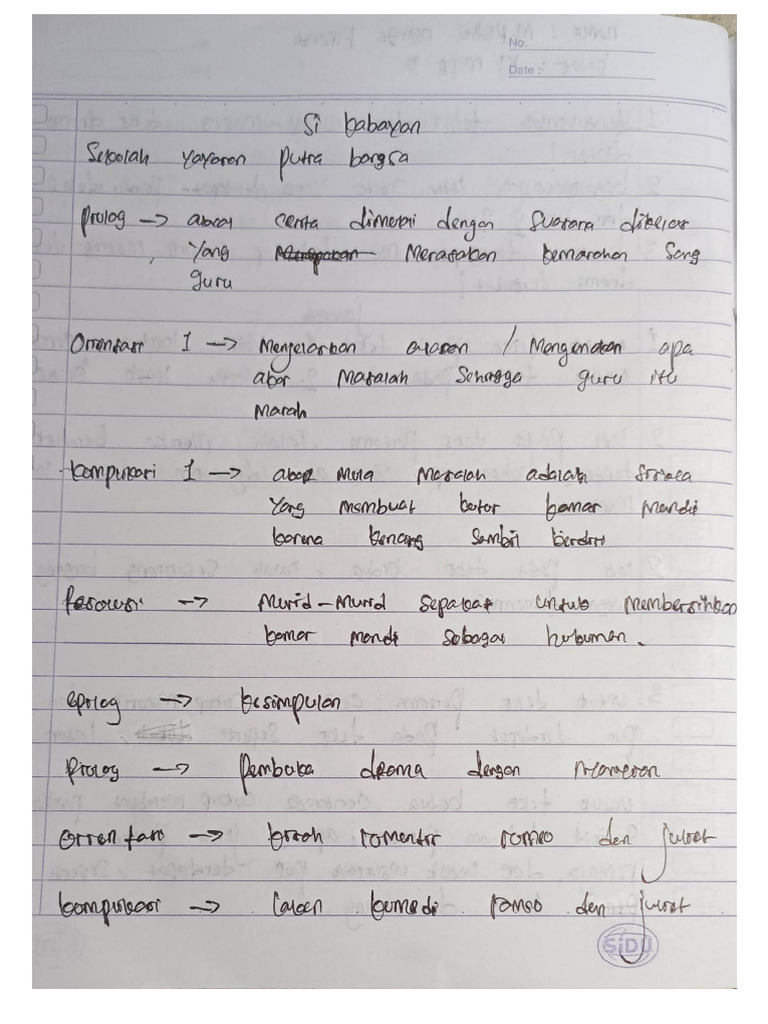 No.
Date :
Si kabayan
Sekolah yayasan putra bangsa
Prolog -> akar cerita dimulai dengan suasana dikelas
yang Merasakan kemarahan sang
guru
Orientasi 1 -> Menjelaskan alasan / Mengenakan apa
akar Masalah Sehingga guru itu
Marah
komplikasi 1 -> akar Mula Masalah adalah Siswa
yang membuat kotor kamar mandi
karena kencing sambil berdiri
Resolusi -> Murid-Murid sepakat untuk Membersihkan
kamar mandi sebagai hukuman.
epilog -> kesimpulan
Prolog -> Pembuka drama dengan
Orientasi -> kisah romantis romeo dan juliet
komplikasi -> komedi romeo dan juliet
SiDU